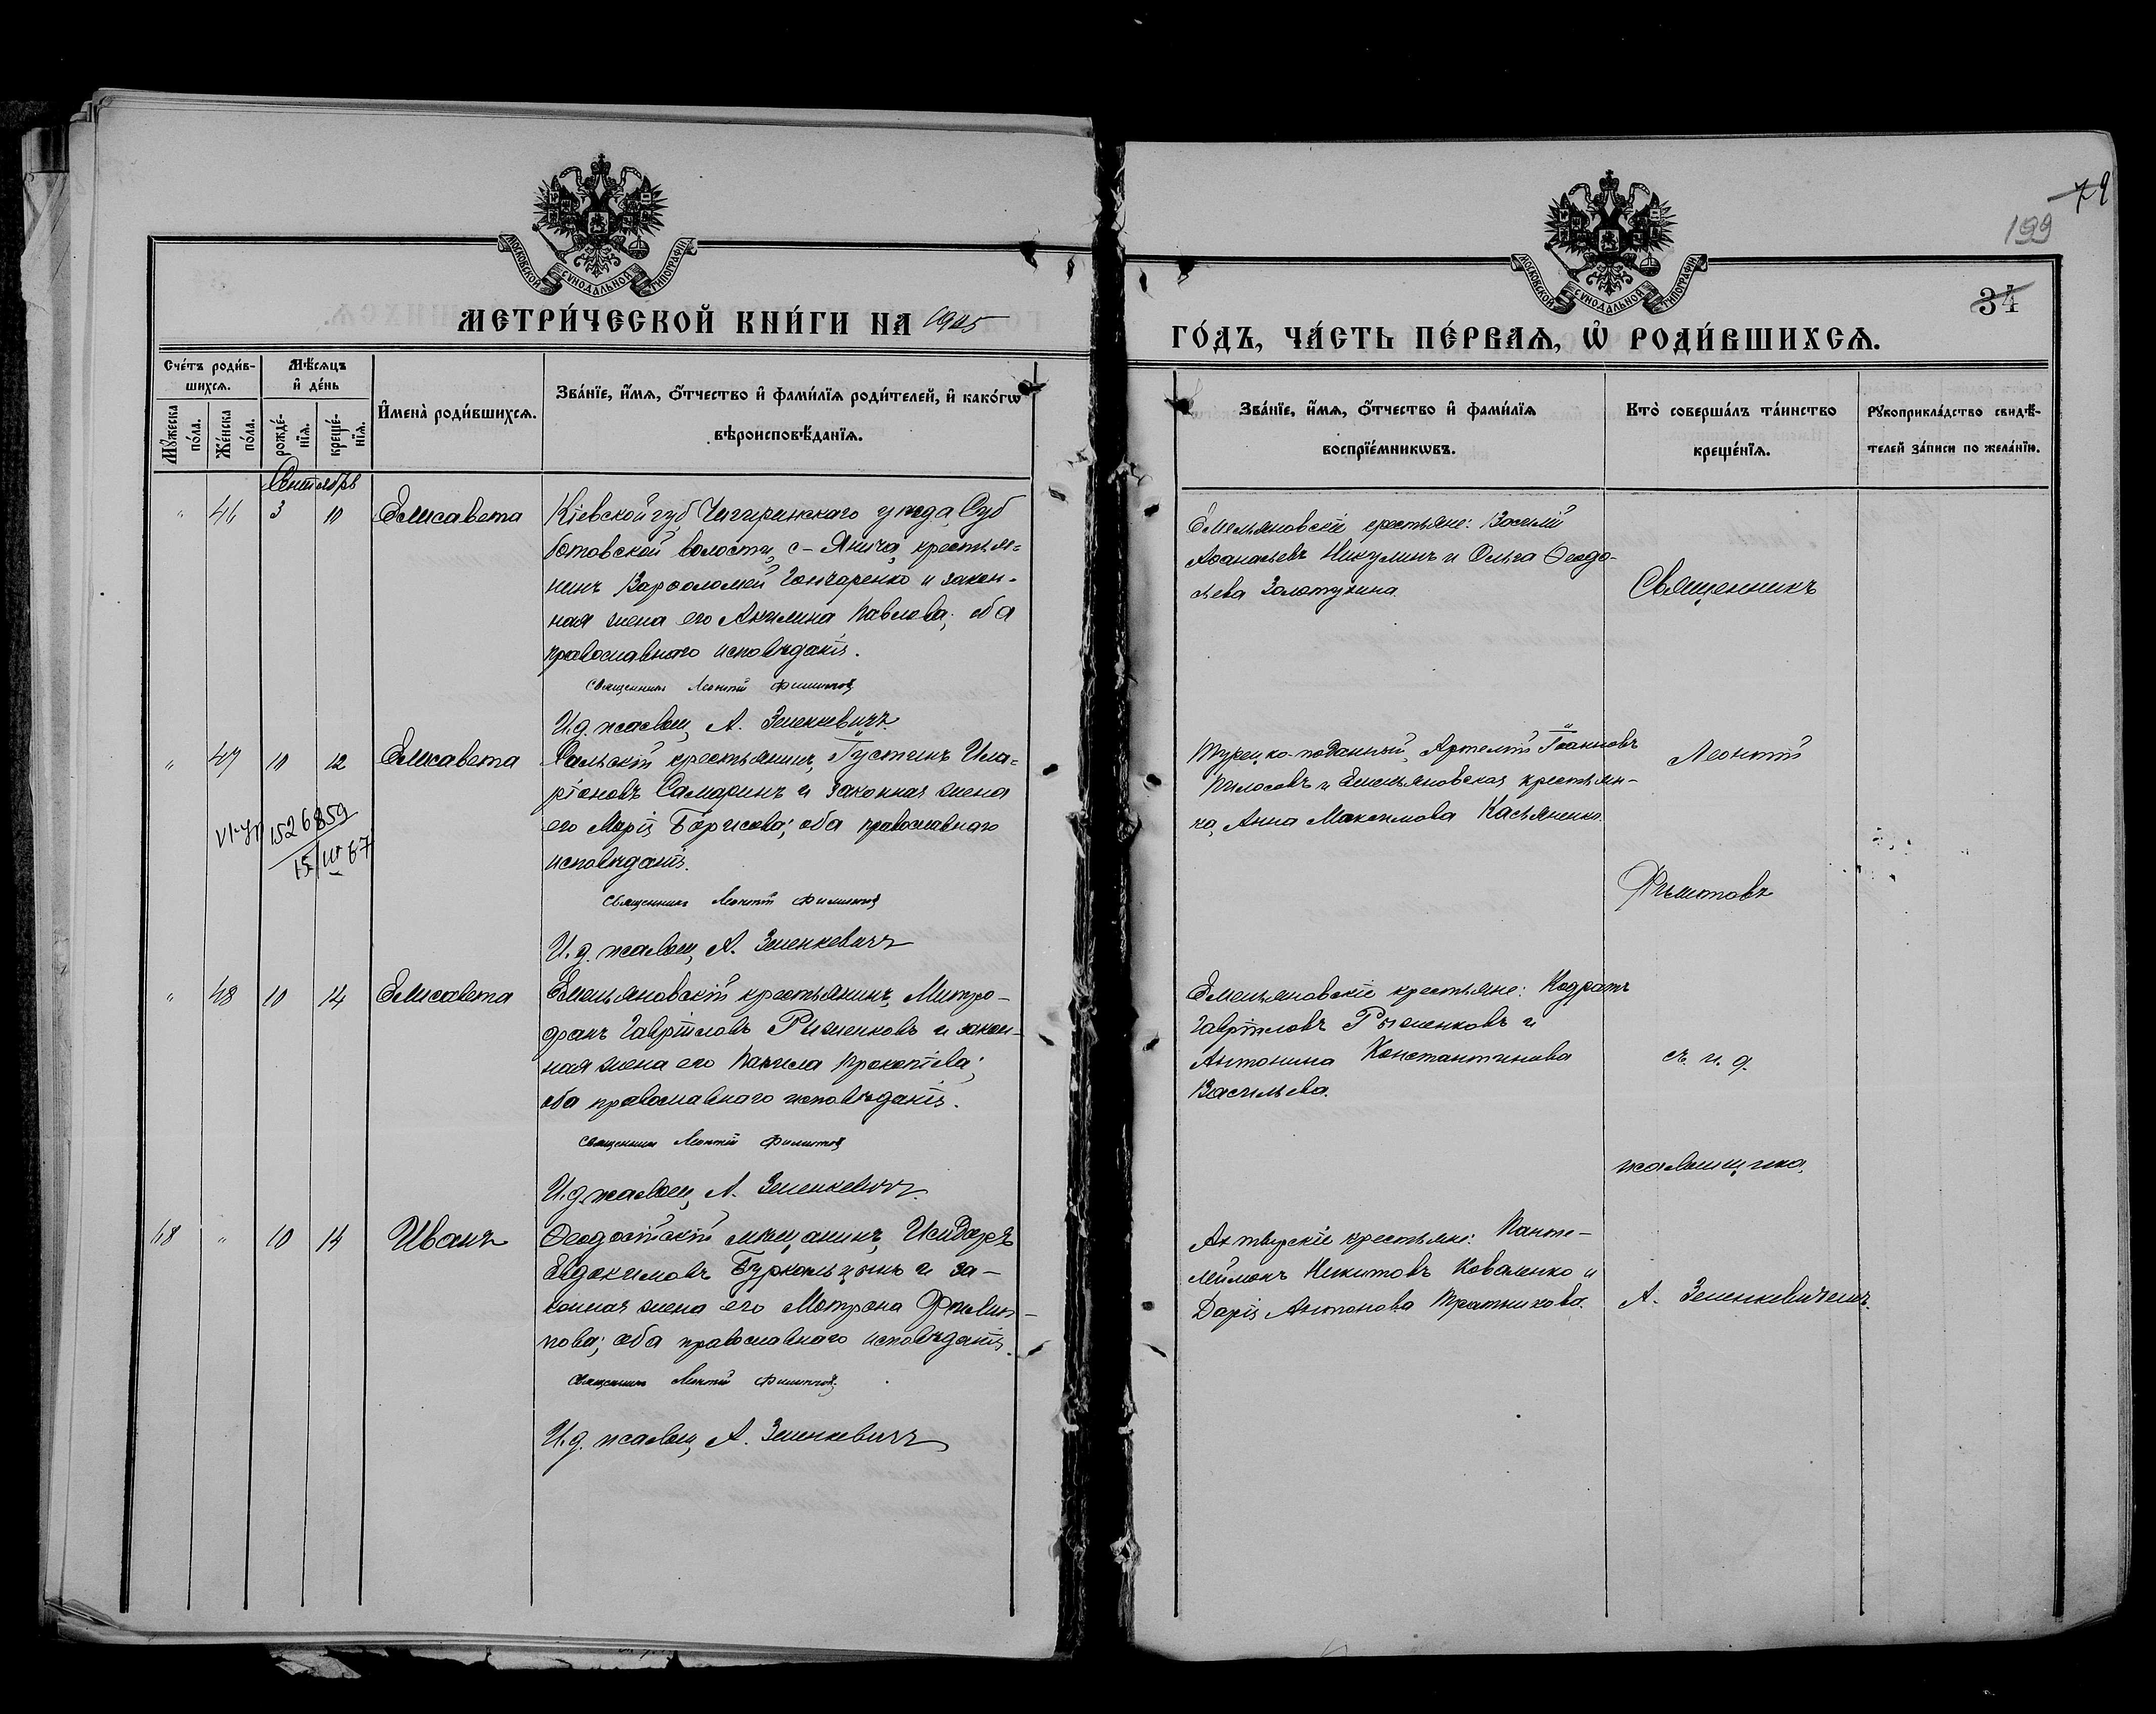 МОСКОВСКОЙ СѴНОДАЛЬНОЙ ТИПОГРАФІИ
МЕТРИ́ЧЕСКОЙ КНИ́ГИ НА 1905
Сче́тъ роди́в-
шихсѧ.
Мѣ́сѧцъ
и҆ де́нь
Му́жеска
по́ла.
Же́нска
по́ла.
рожде́-
нїѧ.
креще́-
нїѧ.
И҆мена̀ роди́вшихсѧ.
Зва́нїе, и҆́мѧ, ѻ҆́тчество и҆ фами́лїѧ роди́телей, и҆ како́гѡ
вѣроисповѣ́данїѧ.
Сентябрь
" 46 3 10 Елисавета
Кіевской губ. Чигиринскаго уѣзда, Суб
ботовской волости, с-
крестья-
нинъ Варѳоломей Гончаренко и закон-
ная жена его Акилина Павлова; оба
православнаго исповѣданія.
Священникъ Леонтій Филиппов
И.д. псаломщ. А. Зеленкевичъ
" 47 10 12 Елисавета
крестьянинъ, Іустинъ Ила-
ріоновъ Самаринъ и законная жена
его Марія Борисова; оба православнаго
исповѣданія.
1526859
15/III 67
Священникъ Леонтій Филиппов
И.д. псаломщ. А. Зеленкевичъ
" 48 10 14 Елисавета
Емельяновскій крестьянинъ, Митро-
фанъ Гавріиловъ Рыженковъ и закон-
ная жена его
Прокопіева;
оба православнаго исповѣданія.
Священникъ Леонтій Филиппов
И.д. псаломщ. А. Зеленкевичъ
48 " 10 14 Иванъ
Ѳеодосійскій мѣщанинъ, Исидоръ
Евдокимовъ
и за-
конная жена его Матрона Филип-
пова; оба православнаго исповѣданія.
Священникъ Леонтій Филиппов
И.д. псаломщ. А. Зеленкевичъ
79
199
34
МОСКОВСКОЙ СѴНОДАЛЬНОЙ ТИПОГРАФІИ
ГО́ДЪ, ЧА́СТЬ ПЕ́РВАѦ, Ѡ҆ РОДИ́ВШИХСѦ.
Зва́нїе, и҆́мѧ, ѻ҆́тчество и҆ фами́лїѧ
воспрїе́мникѡвъ.
Кто̀ соверша́лъ та́инство
креще́нїѧ.
Рꙋкоприкла́дство свидѣ́-
телей за́писи по жела́нїю.
Емельяновскіе крестьяне: Василій
Аѳанасьевъ Никулинъ и Ольга Ѳеодо-
сьева Золотухина.
Священникъ
Турецко-подданный, Артемій Іоанновъ
и Емельяновская крестьян-
ка, Анна Максимова Касьяненко.
Леонтій
Филиповъ
Емельяновскіе крестьяне: Кодратъ
Гавріиловъ Рыженковъ и
Антонина Константинова
Васильева.
съ и. д.
псаломщика
крестьяне: Панте-
леймонъ Никитовъ Коваленко и
Дарія Антонова
А. Зеленкевичемъ.